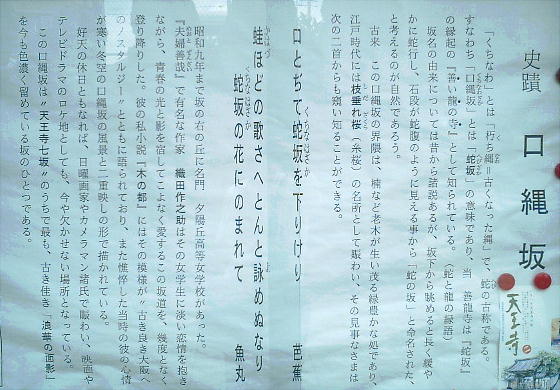 史蹟 口縄坂
「くちなわ」とは「朽ち縄=古くなった縄」で、蛇の古称である。
すなわち「口縄坂」とは「蛇坂」の意味であり、当 善龍寺は『蛇坂』
の縁起の『善い龍の寺』として知られている。(蛇と龍の縁語)
坂名の由来については昔から諸説あるが、坂下から眺めると長く緩や
かに蛇行し、石段が蛇腹のように見える事から「蛇の坂」と命名された、
と考えるのが自然であろう。
古来 この口縄坂の界隈は、楠など老木が生い茂る緑豊かな処であり、
江戸時代には枝垂れ桜(糸桜)の名所として賑わい、その見事なさまは
次の二首からも窺い知ることができる。
口とぢて蛇坂を下りけり 芭蕉
蛙ほどの歌さへとんと詠めぬなり
蛇坂の花にのまれて 魚丸
昭和九年まで坂の右の丘に名門 夕陽丘高等女学校があった。
『夫婦善哉』で有名な作家 織田作之助はその女学生に淡い恋情を抱き
ながら、青春の光と影を宿してこよなく愛するこの坂道を、幾度となく
登り降りした。彼の私小説『木の都』にはその模様が〝古き良き大阪へ
のノスタルジー〟とともに語られており、また憔悴した当時の彼の心情
が寒い冬空の口縄坂の風景と二重映しの形で描かれている。
好天の休日ともなれば、日曜画家やカメラマン諸氏で賑わい、映画や
テレビドラマのロケ地としても、今や欠かせない場所となっている。
この口縄坂は〝天王寺七坂〟のうちで最も、古き佳き「浪華の面影」
を今も色濃く留めている坂のひとつである。
天王寺